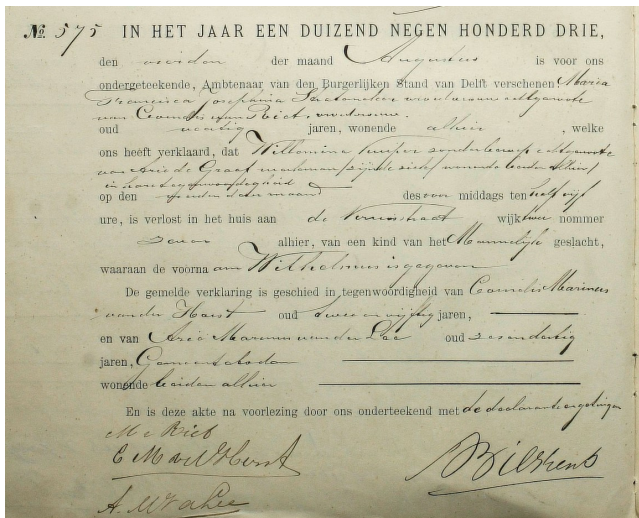 No. 575 IN HET JAAR EEN DUIZEND NEGEN HONDERD DRIE,
den der maand Augustus is voor ons
ondergeteekende, Ambtenaar van den Burgerlijken Stand van Delft verschenen: Maria
Francisca Josephina
van Cornelis van Riet,
oud veertig jaren, wonende alhier, welke
ons heeft verklaard, dat Wilhelmina Kuiper zonder beroep echtgenoote
van Arie de Graaf werkman, zijnde ziek, wonende beiden alhier,
in hare tegenwoordigheid
op den dezer maand des voor middags ten half vijf
ure, is verlost in het huis aan de straat wijk twee nommer
zeven alhier, van een kind van het Mannelijk geslacht,
waaraan de voorna am Wilhelmus is gegeven
De gemelde verklaring is geschied in tegenwoordigheid van Cornelis Marinus
van der Horst oud twee en vijftig jaren,
en van Arie Marinus van der Lee oud zes en dertig
jaren, Gemeentebode
wonende beiden alhier
En is deze akte na voorlezing door ons onderteekend met de declarante en getuigen
M v Riet
C M v d Horst
A. M v d Lee